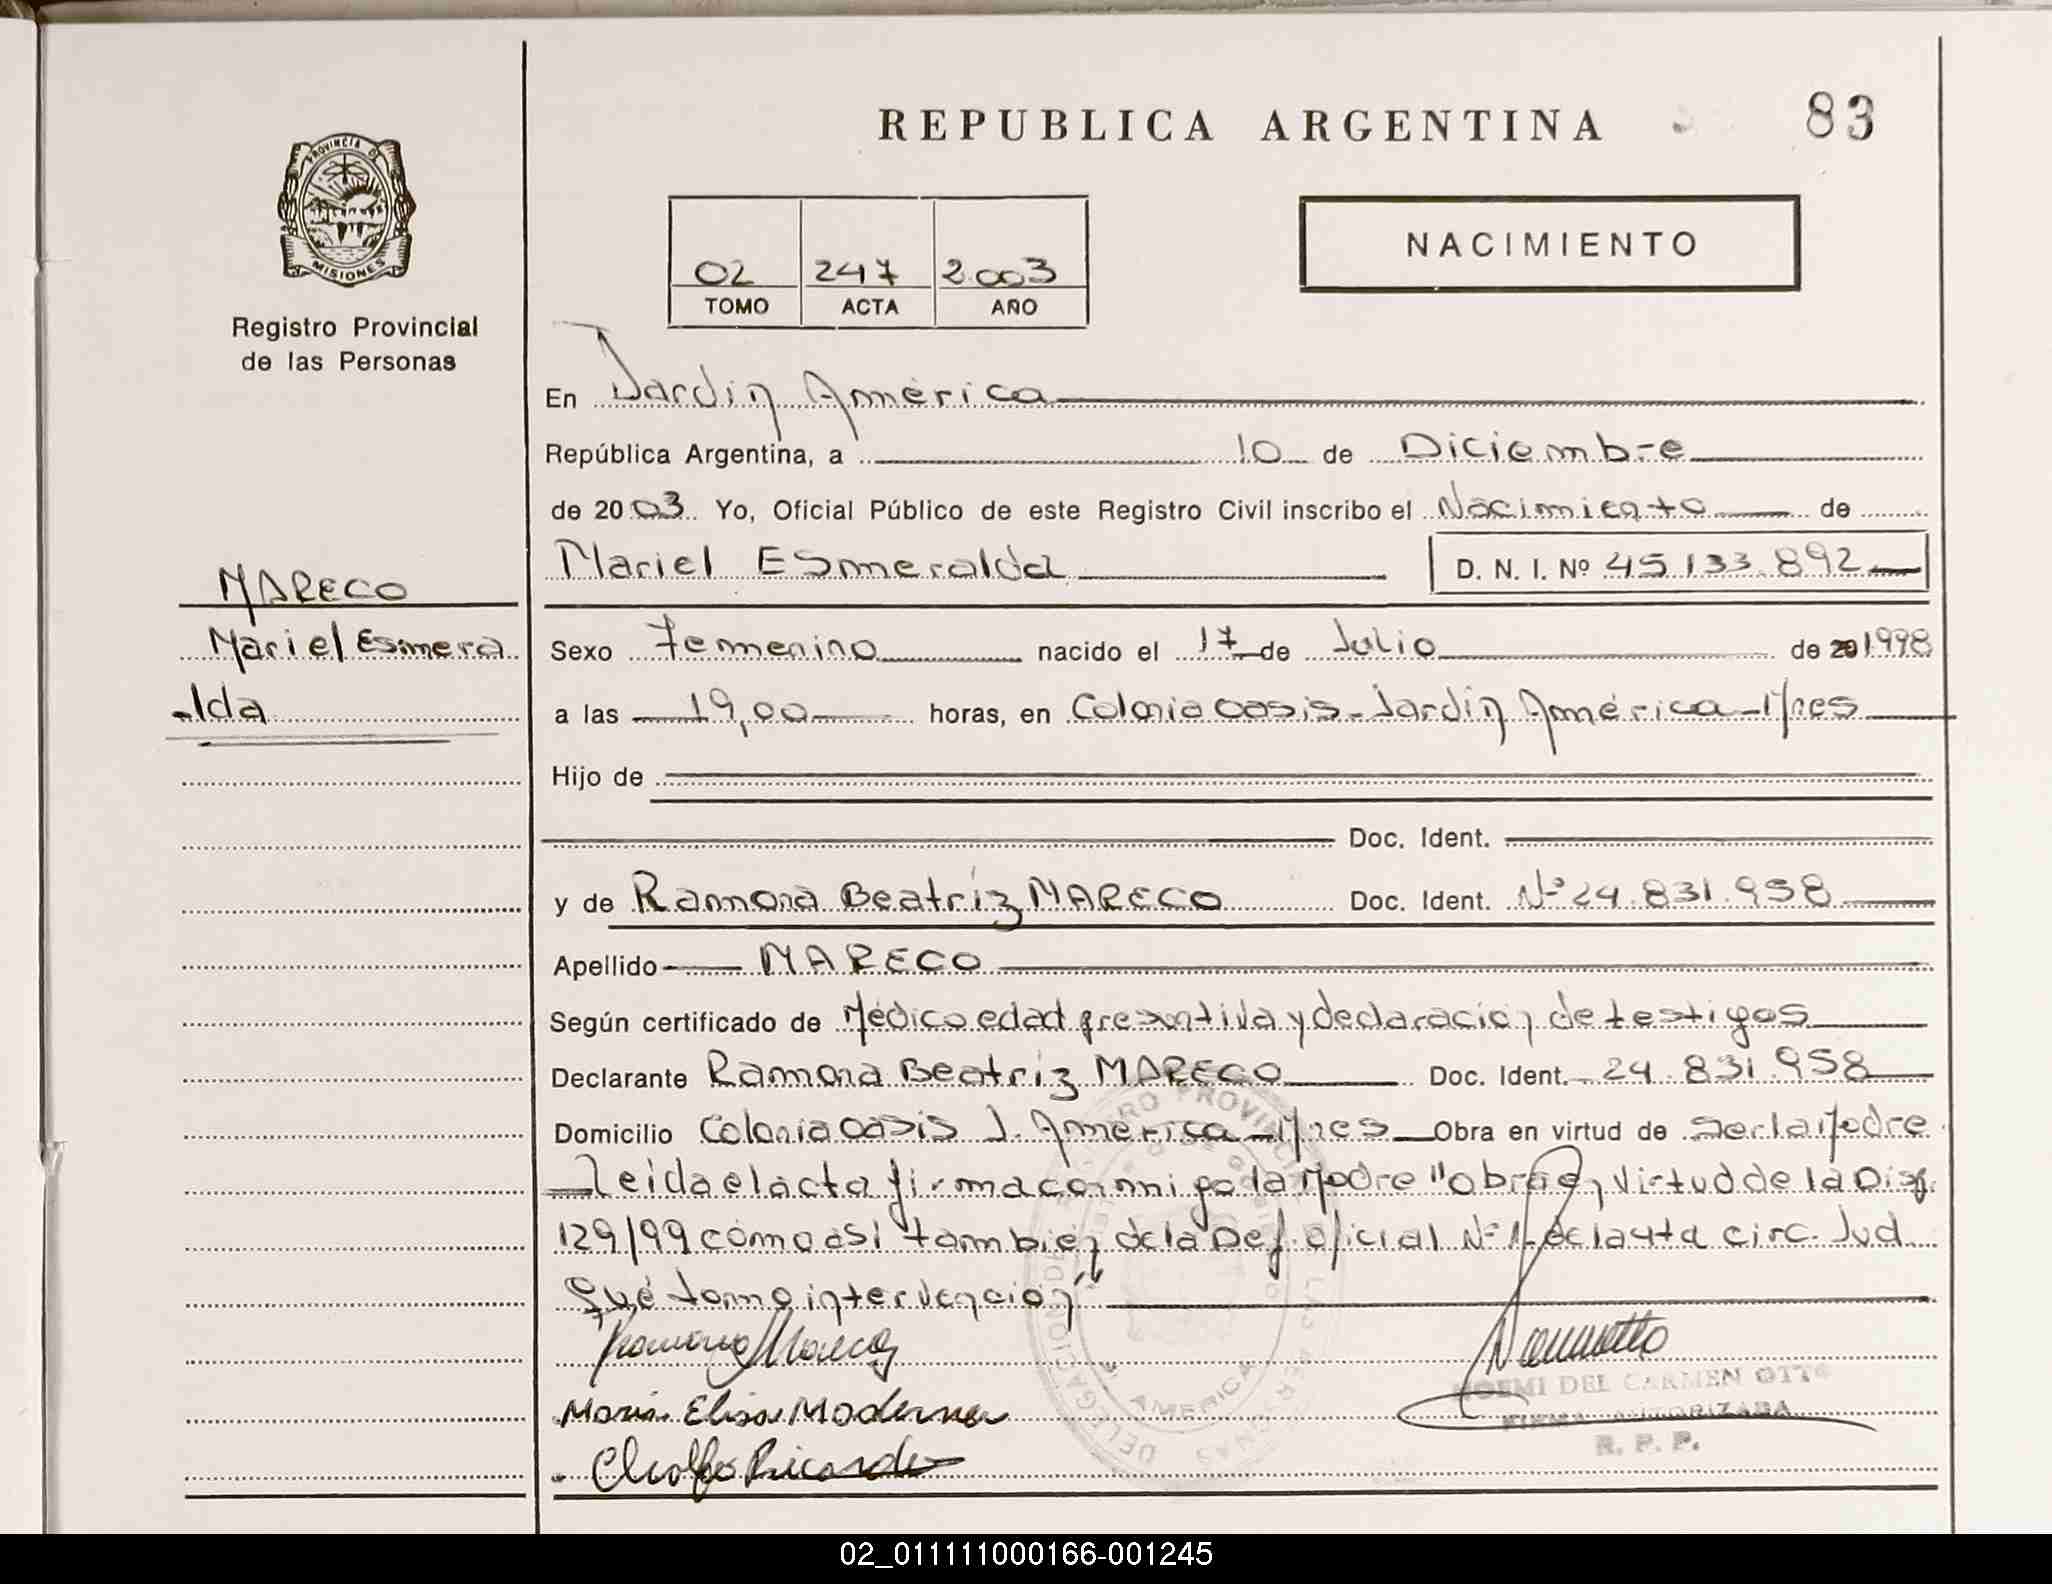 REPUBLICA ARGENTINA
83
PROVINCIA D
MISIONES
Registro Provincial
de las Personas
02 247 2.003
TOMO ACTA AÑO
NACIMIENTO
En Jardín América
República Argentina, a 10 de Diciembre
de 2003. Yo, Oficial Público de este Registro Civil inscribo el Nacimiento de
Mariel ESmeralda D. N. I. Nº 45.133.892
MARECO
Mariel Esmera
lda
Sexo Femenino nacido el 17 de Julio de 20 1998
a las 19,00 horas, en Colonia oasis - Jardín América - Mnes
Hijo de
Doc. Ident.
y de Ramona Beatríz MARECO Doc. Ident. Nº 24.831.958
Apellido MARECO
Según certificado de Médico edad presuntiva y declaración de testigos
Declarante Ramona Beatriz MARECO Doc. Ident. 24.831.958
Domicilio Colonia oasis J. América - Mnes Obra en virtud de ser la Madre
Leida el acta firma conmigo la Madre "obra en virtud de la Disp.
129/99 como así también de la Def. oficial Nº 1 de la 4ta circ. Jud
qué tomo intervención"
Ramona Mareco
Maria Elisa
Ricardo
NOEMI DEL CARMEN OTTO
FIRMA AUTORIZADA
R. P. P.
AMERICA
02_011111000166-001245